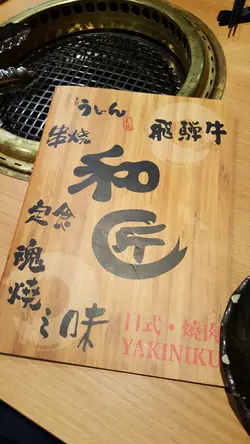 うどん
串烧
飛騨牛
和匠
定食
魂
燒
之味
日式・燒肉
YAKINIKU